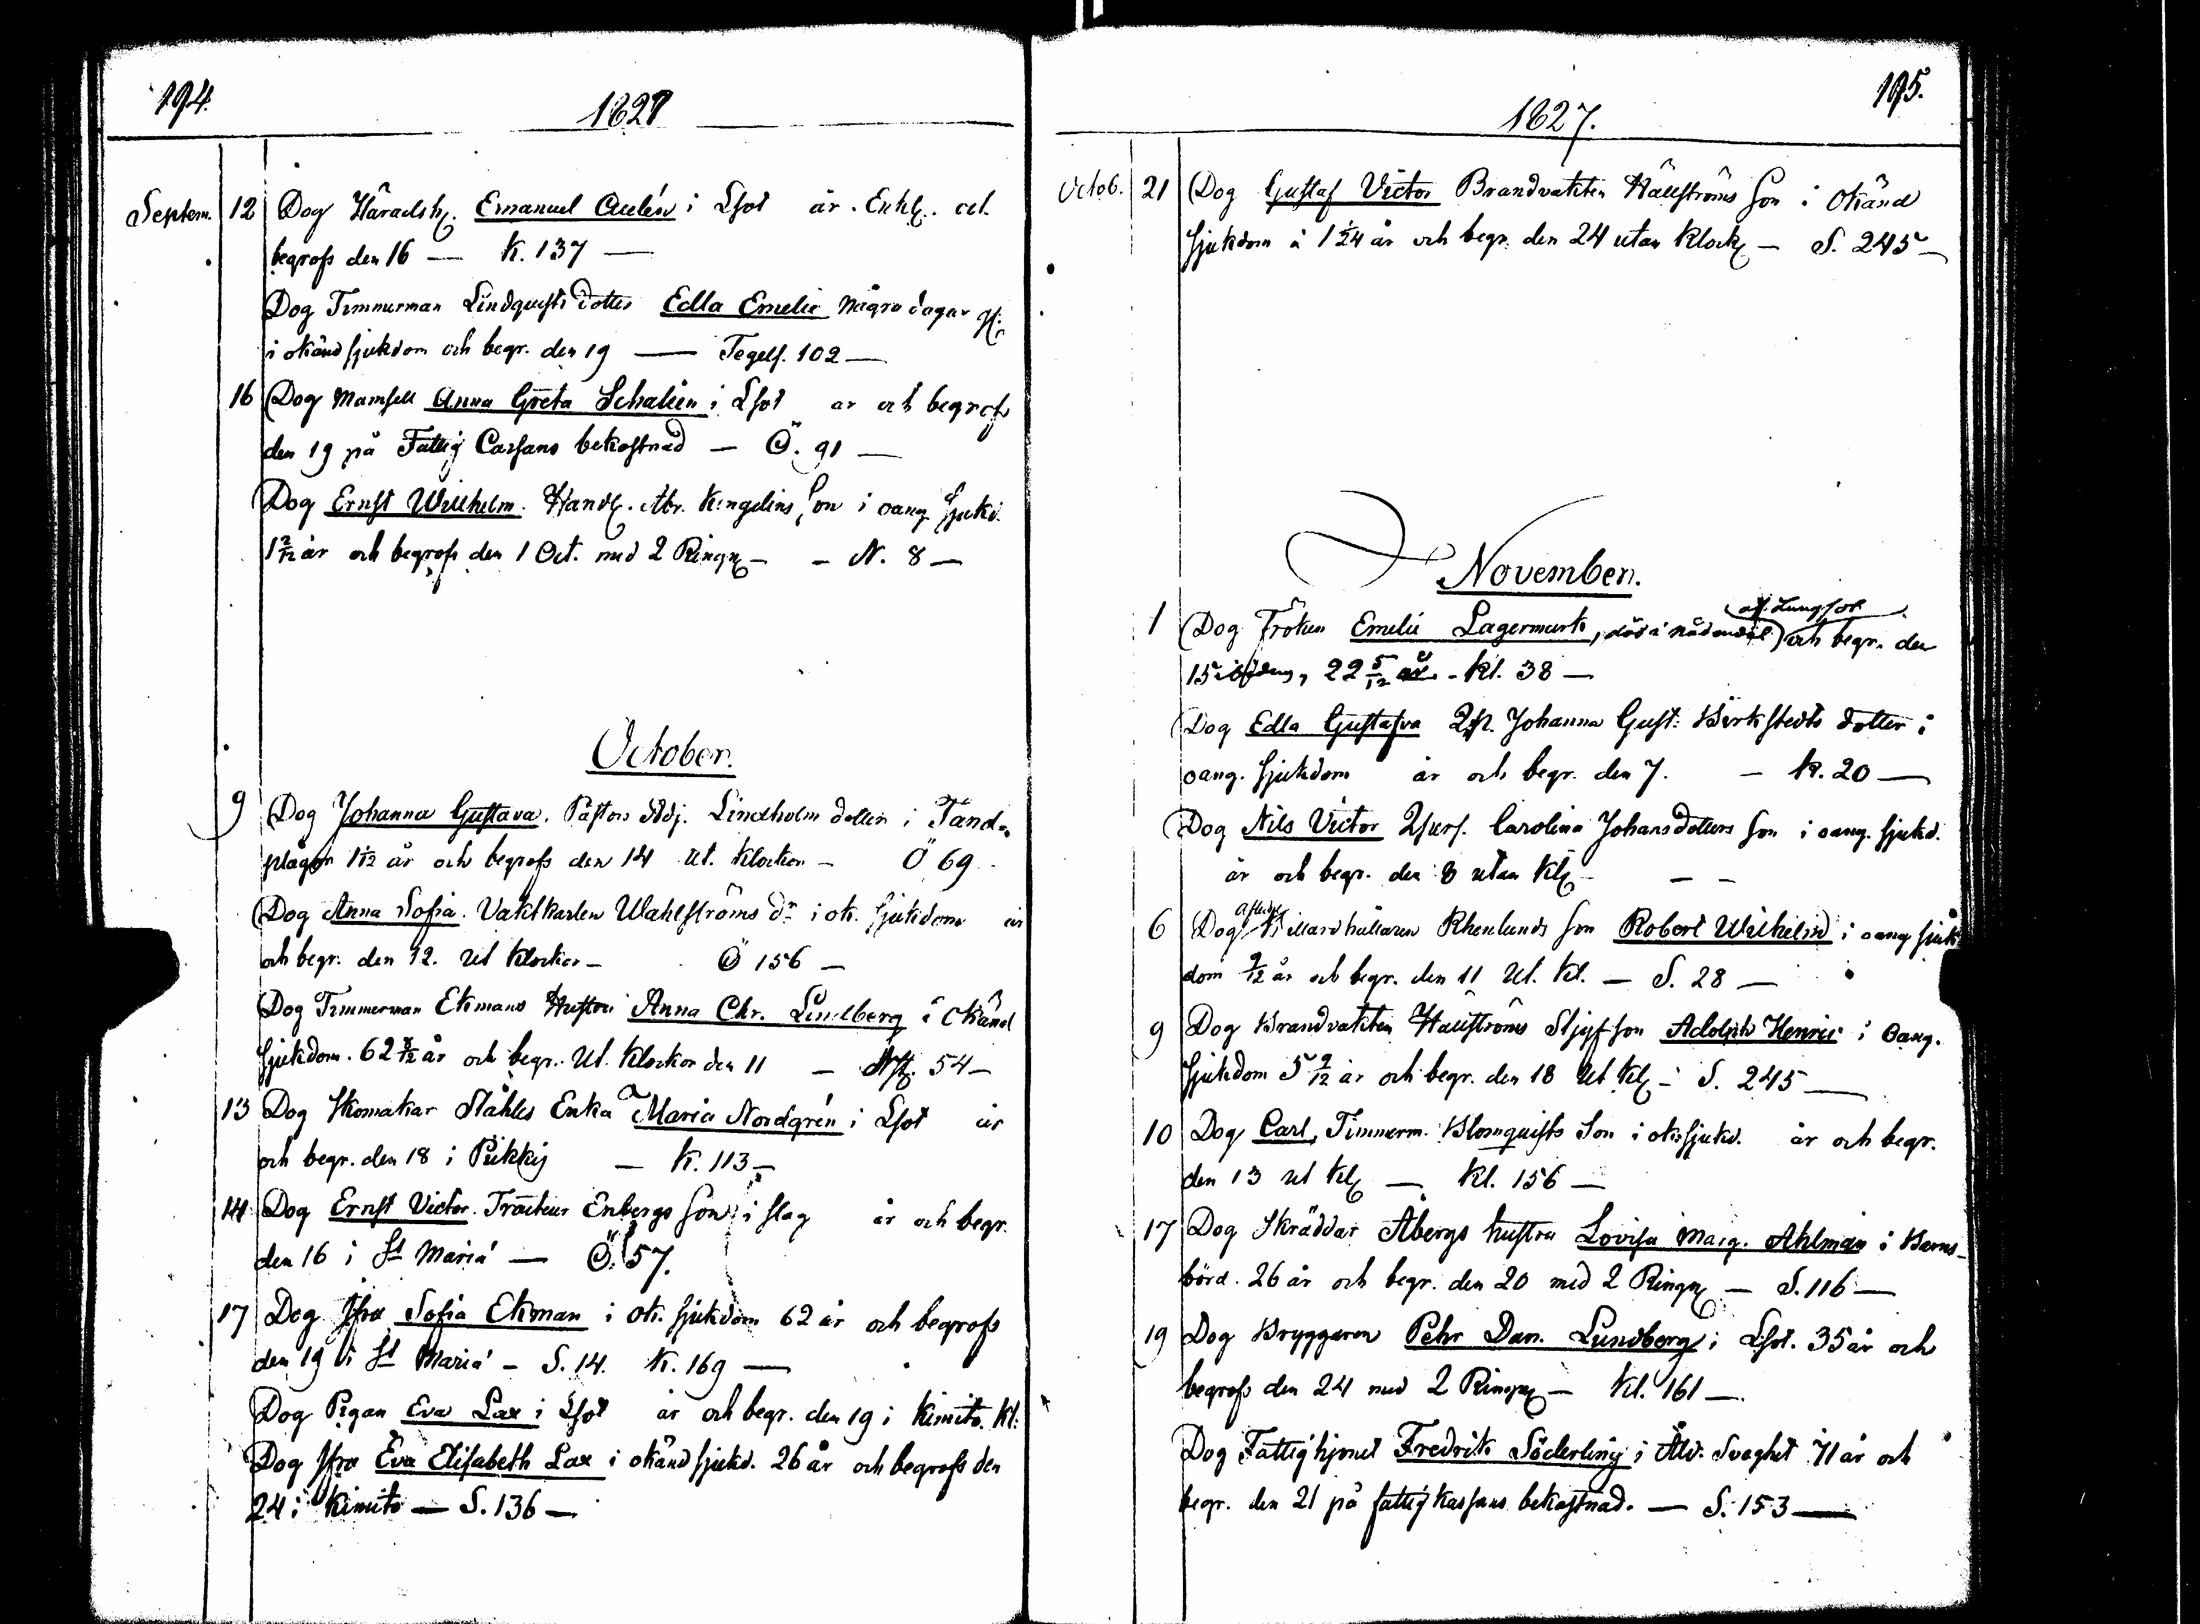 194.
1827
Septem. 12 Dog Häradsh. Emanuel Aulén i Lsot år. Enkl. och
begrofs den 16 — K. 137 —
Dog Timmerman Lindqvists dotter Edla Emelie några dagar
i okänd sjukdom och begr. den 19 — Tegelf. 102 —
16 Dog Mamsell Anna Greta Schalien i Lsot år och begrofs
den 19 på Fattig Cassans bekostnad — Ö. 91 —
Dog Ernst Willhelm. Handl. Kingelins Son i oang. sjukd.
1 2/12 år och begrofs den 1 Oct. med 2 Ringn. — — N. 8 —
October.
9 Dog Johanna Gustava. Pastors Adj. Lindholm dotter i Tand-
plågor 1 1/12 år och begrofs den 14 ut. Klockor — Ö 69
Dog Anna Sofia. Vaktkarlen Wahlströms dr i ok. sjukdom år
och begr. den 12. ut Klockor — Ö 156 —
Dog Timmerman Ekmans Hustru Anna Chr. Lindberg i Okänd
sjukdom. 62 8/12 år och begr. ut. Klockor den 11 — 54 —
13 Dog Skomakar Ståhles Enka Maria Nordgrén i Lsot år
och begr. den 18 i Piikkis — K. 113 —
14 Dog Ernst Victor. Tracteur Enbergs Son i slag år och begr.
den 16 i St Mariæ — Ö. 57.
17 Dog Jfru Sofia Ekman i ok. sjukdom 62 år och begrofs
den 19 i St Mariæ — S. 14. K. 169 —
Dog Pigan Eva Lax i Lsot år och begr. den 19 i Kimito. Kl.
Dog Jfru Eva Elisabeth Lax i okänd sjukd. 26 år och begrofs den
24 i Kimito — S. 136 —
195.
1827.
Octob. 21 Dog Gustaf Victor Brandvakten Hällströms Son i Okänd
sjukdom à 1 1/24 år och begr. den 24 utan Klock. — S. 245 —
November.
af Lungsot
1 Dog Fröken Emelie Lagermark, död i Nådendal och begr. den
15 22 5/12 år. - Kl. 38 —
Dog Edla Gustafva Qp. Johanna Gust. Birkstedts dotter i
oang. sjukdom år och begr. den 7. — K. 20 —
Dog Nils Victor Qpers. Carolina Johansdotters Son i oang. sjukd.
år och begr. den 8 utan Kl. — —
Afledne
6 Dog Killarehållaren Rhenlunds Son Robert Wilhelm i oang sjuk
dom 9/12 år och begr. den 11 ut. Kl. — S. 28 —
9 Dog Brandvakten Hällströms Styfson Adolph Henric i Oang.
sjukdom 5 9/12 år och begr. den 18 ut Kl. — S. 245 —
10 Dog Carl, Timmerm. Blomqvists Son i ok. sjukd. år och begr.
den 13 ut Kl. — Kl. 156 —
17 Dog Skräddar Åbergs hustru Lovisa Marg. Ahlman i Barns-
börd. 26 år och begr. den 20 med 2 Ringn. — S. 116 —
19 Dog Bryggaren Pehr Dan. Lundberg i Lsot. 35 år och
begrofs den 24 med 2 Ringn. — Kl. 161 —
Dog Fattighjonet Fredrik Söderling i Åld. Svaghet 71 år och
begr. den 21 på fattigkassans bekostnad. — S. 153 —